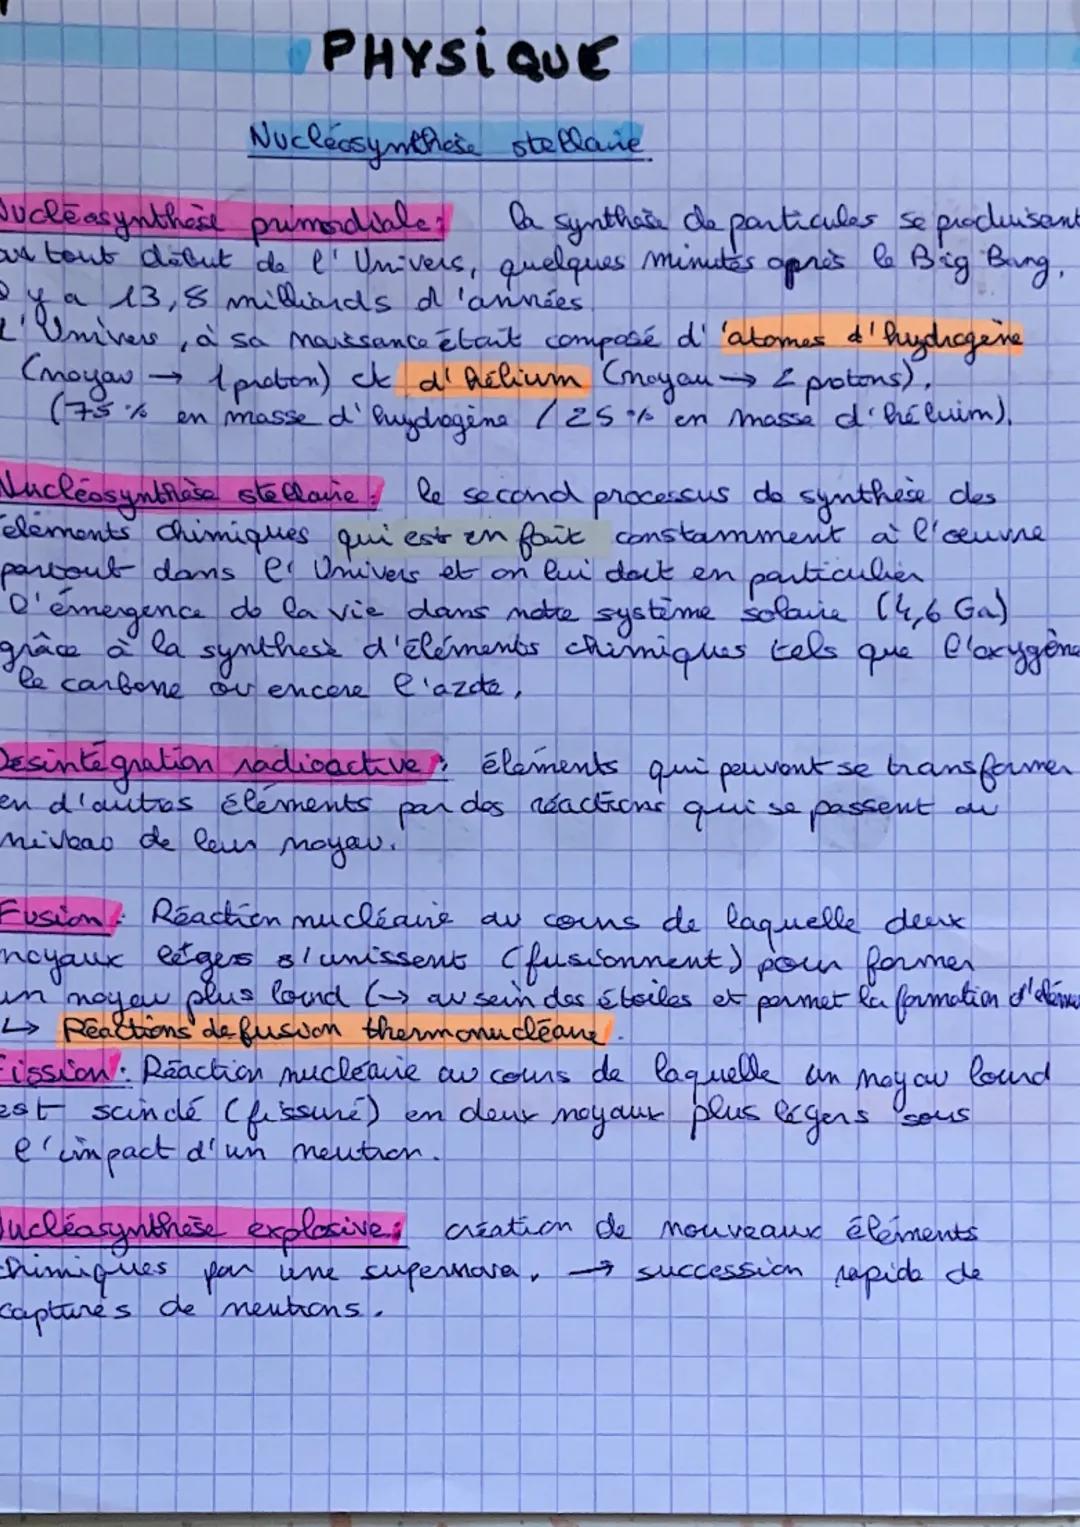 PHYSIQUE
Nucléosynthèse stellaire
Nucléosynthèse primordiale : la synthèse de particules se produisant
au tout début de l'Univers, quelques minutes après le Big Bang,
il y a 13,8 milliards d'années.
L'Univers, à sa naissance était composé d'atomes d'hydrogène
(noyau → 1 proton) et d'hélium (noyau → 2 protons).
(75 % en masse d'hydrogène / 25 % en masse d'héluim).
Nucléosynthèse stellaire : le second processus de synthèse des
éléments chimiques qui est en fait constamment à l'œuvre
partout dans l'Univers et on lui doit en particulier
l'émergence de la vie dans notre système solaire (4,6 Ga)
grâce à la synthèse d'éléments chimiques tels que l'oxygène
le carbone ou encore l'azote.
Désintégration radioactive : éléments qui peuvent se transformer
en d'autres éléments par des réactions qui se passent au
niveau de leur noyau.
Fusion : Réaction nucléaire au cours de laquelle deux
noyaux légers s'unissent (fusionnent) pour former
un noyau plus lourd (→ au sein des étoiles et permet la formation d'éléme
↳ Réactions de fusion thermonucléaire.
Fission : Réaction nucléaire au cours de laquelle un noyau lourd
est scindé (fissuré) en deux noyaux plus légers sous
l'impact d'un neutron.
Nucléosynthèse explosive : création de nouveaux éléments
chimiques par une supernova. → succession rapide de
captures de neutrons.